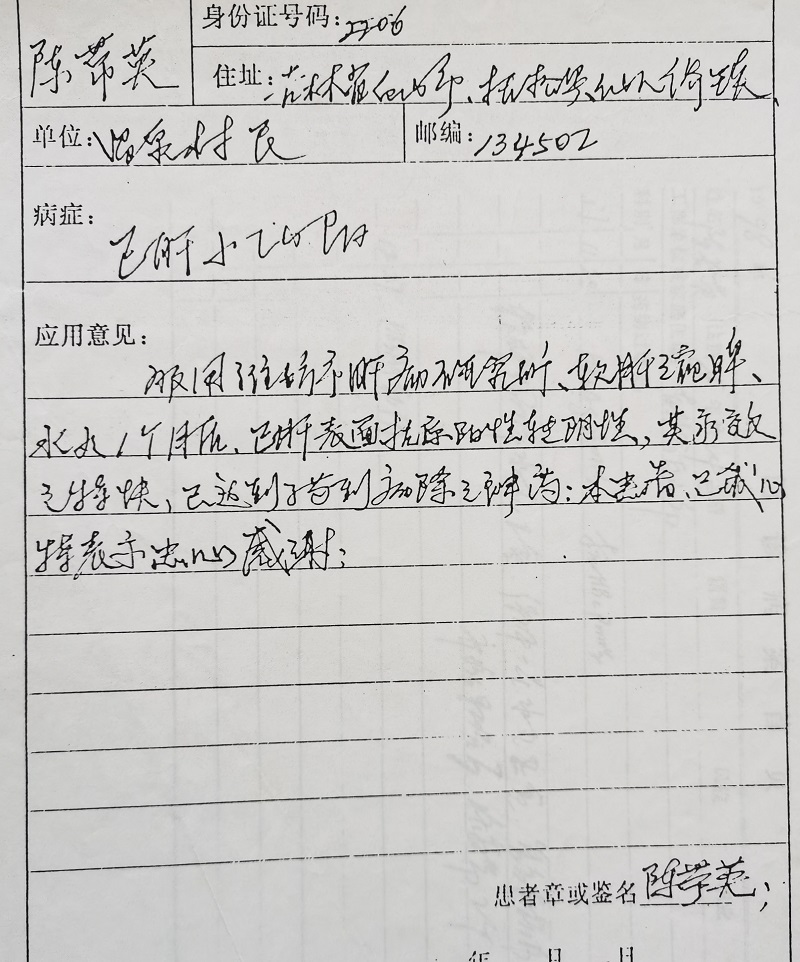 身份证号码:2206
陈常英
住址:吉林省白山市、抚松县仙人桥镇
单位:温泉村民
邮编:134502
病症:
乙肝小
应用意见:
服用潍坊市肝病研究所、软肝
1个月后、乙肝表面抗原阳性转阴性,其疗效
之特快,已达到了药到病除之神药:本患者、已
特表示忠心感谢;
患者章或签名 陈常英;
年 月 日